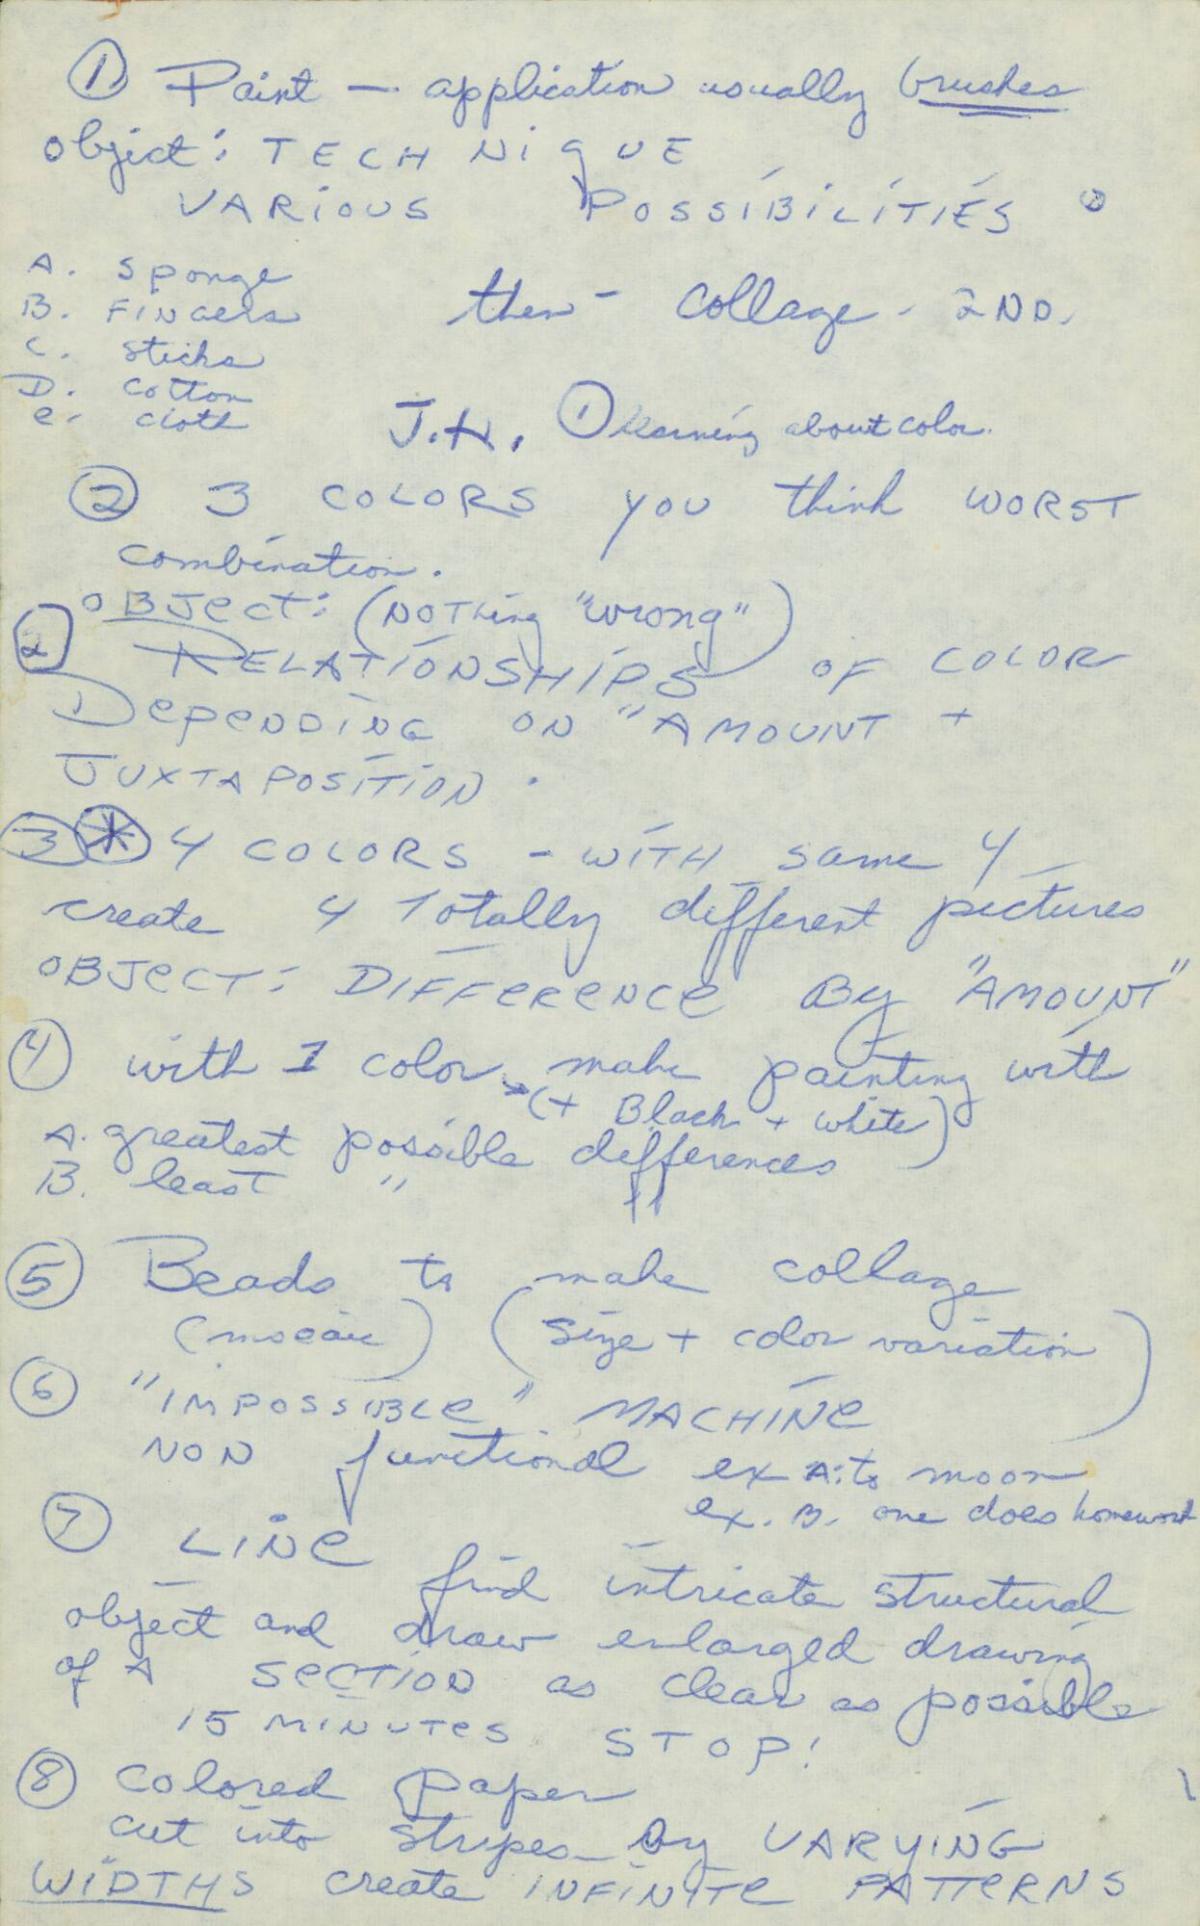 ① Paint — application usually brushes
object: TECHNiqUE
VARiOUS POSSiBiLiTiES
A. sponge
B. FiNgers
C. sticks
D. cotton
e. cloth
then - collage - 2ND.
J.H. ① learning about color.
② 3 COLORS you think WORST
combination.
OBJect: (NOTHing "wrong")
2 RELATiONSHiPS OF COLOR
DepeNDiNG ON "AMOUNT +
JUXTAPOSiTiON.
③ * 4 COLORS - WiTH same 4
create 4 Totally different pictures
OBJecT: DiFFereNce By "AMOUNT"
④ with 1 color make painting with
(+ Black + white)
A. greatest possible differences
B. least "
⑤ Beads to make collage
(mosaic) (size + color variation)
⑥ "iMPOSSiBLe" MACHiNe
NON functional ex A: to moon
ex. B. one does homework
⑦ LiNe
find intricate structural
object and draw enlarged drawing
of A SecTiON as clear as possible
15 MiNUTeS STOP!
⑧ colored paper
cut into stripes - By VARYiNG
WiDTHS create iNFiNiTe PATTeRNS